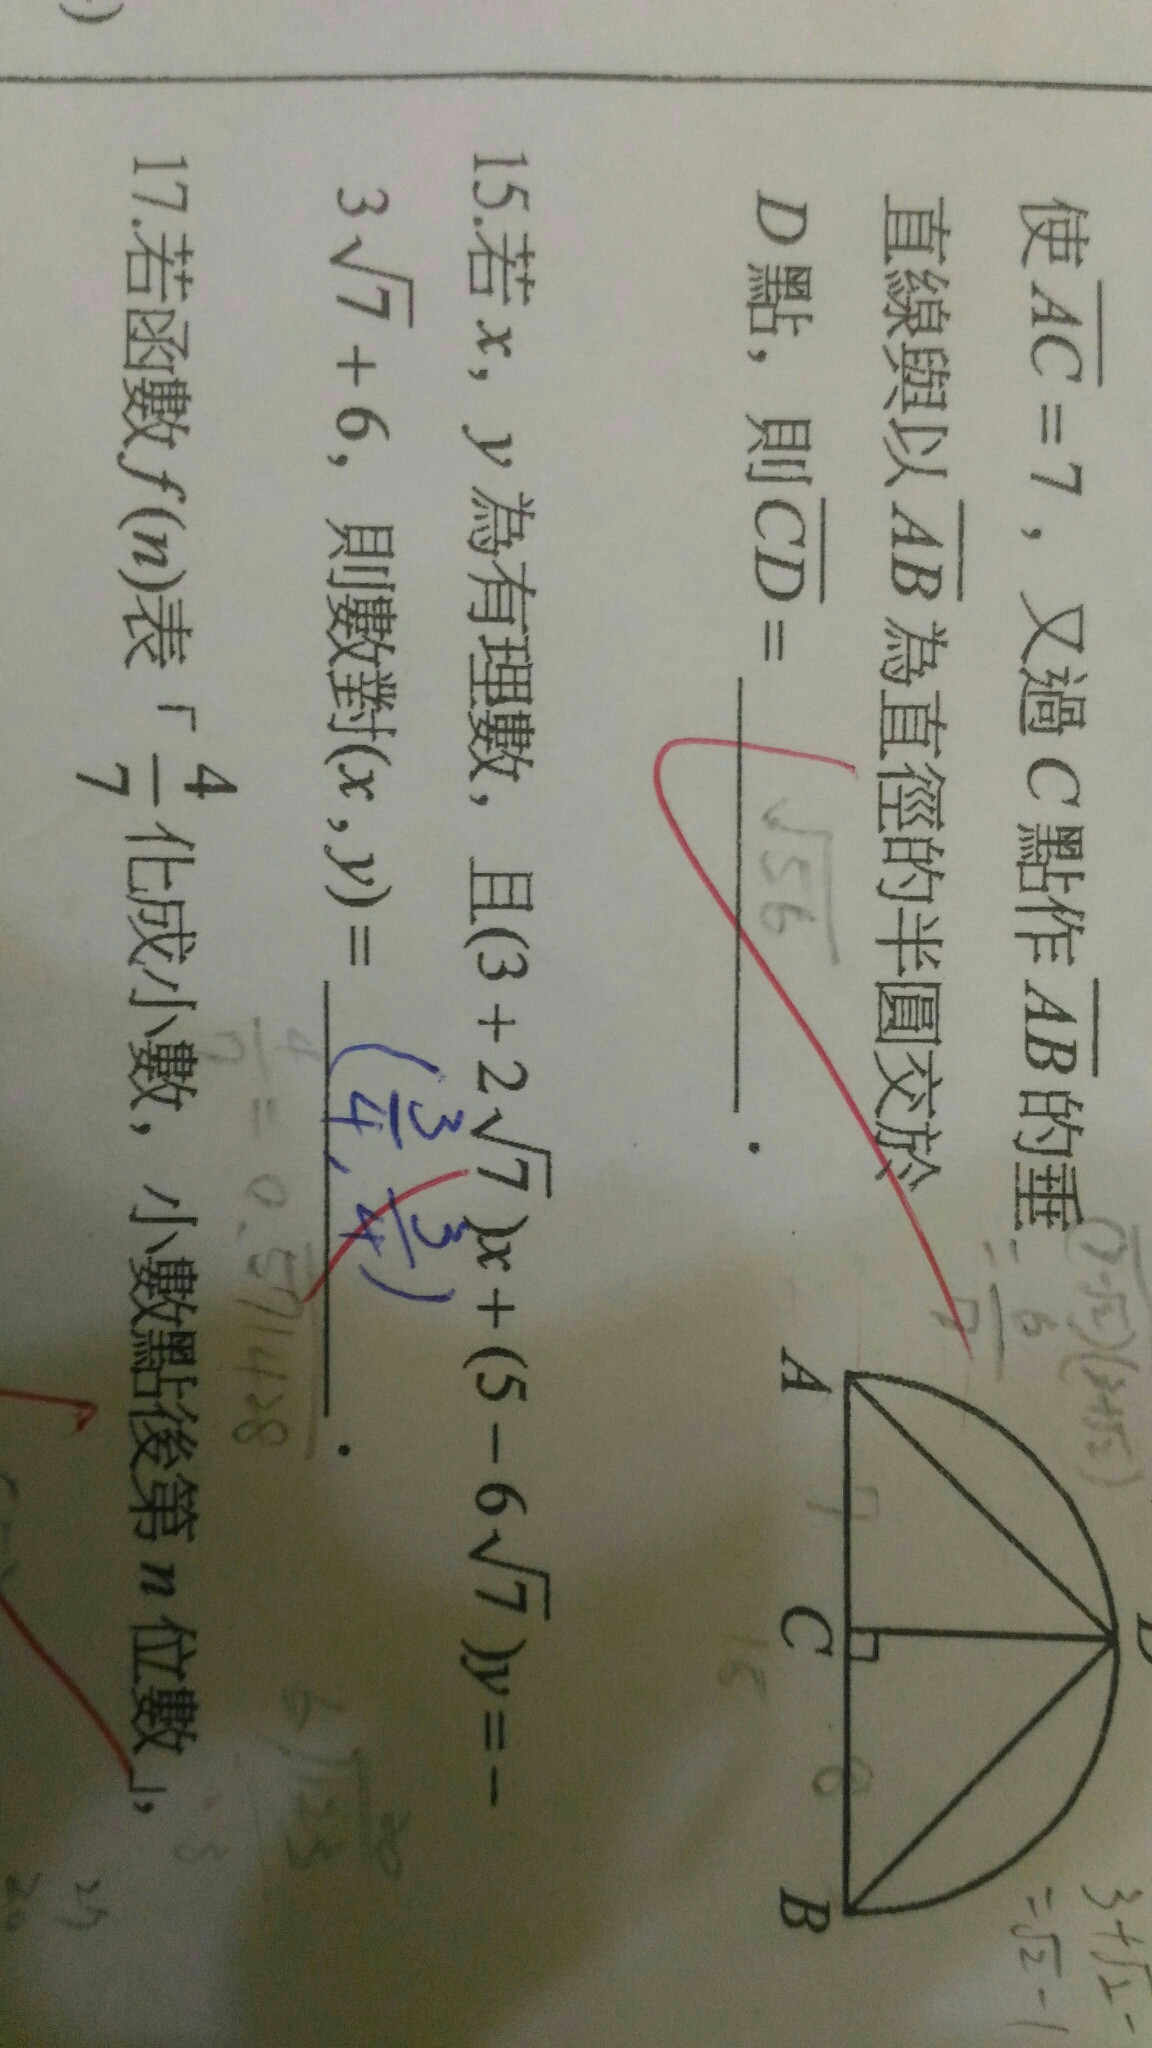 使AC=7,又過C點作AB的垂
直線與以AB為直徑的半圓交於
D點,則CD=√56.
A
7
C
8
B
15
15.若x,y為有理數,且(3+2√7)x+(5-6√7)y=-
3√7+6,則數對(x,y)=(3/4,3/4).
4/7=0.571428
17.若函數f(n)表「4/7化成小數,小數點後第n位數」,